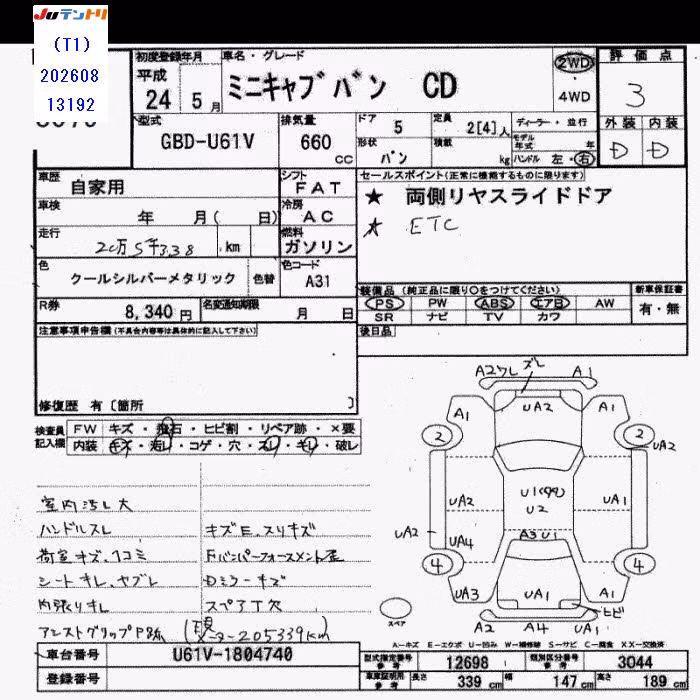 Juテントリ
(T1)
202608
13192
初度登録年月 車名・グレード 評価点
平成 24 5月 ミニキャブバン CD 2WD 4WD 3
型式 GBD-U61V 排気量 660 CC
ドア 5 定員 2[4]人 ディーラー・並行
形状 バン 積載 kg モデル年式 年 ハンドル 左・右
外装 内装
D D
車歴 自家用 シフト FAT
セールスポイント(正常に機能するものに限ります)
★ 両側リヤスライドドア
★ ETC
車検 年 月( 日) 冷房 AC
走行 20万5千338 km 燃料 ガソリン
色 クールシルバーメタリック 色替 色コード A31
装備品 (純正品に限り○をつけてください) 新車保証書
PS PW ABS エアB AW 有・無
SR ナビ TV カワ
R券 8,340円 名変通知期限 月 日
後日品
注意事項申告欄(不具合内容等は具体的に記入して下さい)
修復歴 有〔箇所 〕
検査員記入欄 FW キズ・飛石・ヒビ割・リペア跡・×要
内装 キズ・汚レ・コゲ・穴・スレ・キレ・破レ
室内汚レ大
ハンドルスレ キズE、スリキズ
荷室キズ、凹コミ Fバンパーフォースメント歪
シートキレ、ヤブレ Dミラーキズ
内張りキレ スペアT欠
アシストグリップP跡 (現メーター205339km)
A2ワレ ズレ A1
A1 UA2 A1
2 2 UA2
UA2 U2 UA1
UA2 UA4 A3 U1
4 4
UA3 UA1 A1
ヒビ
スペア A2 A4 UA1
A−キズ E−エクボ U−凹み W−補修跡 S−サビ C−腐食 XX−交換済
車台番号 U61V-1804740
登録番号
型式指定番号 参考 12698 類別区分番号 参考 3044
車庫証明用 参考 長さ 339 cm 幅 147 cm 高さ 189 cm